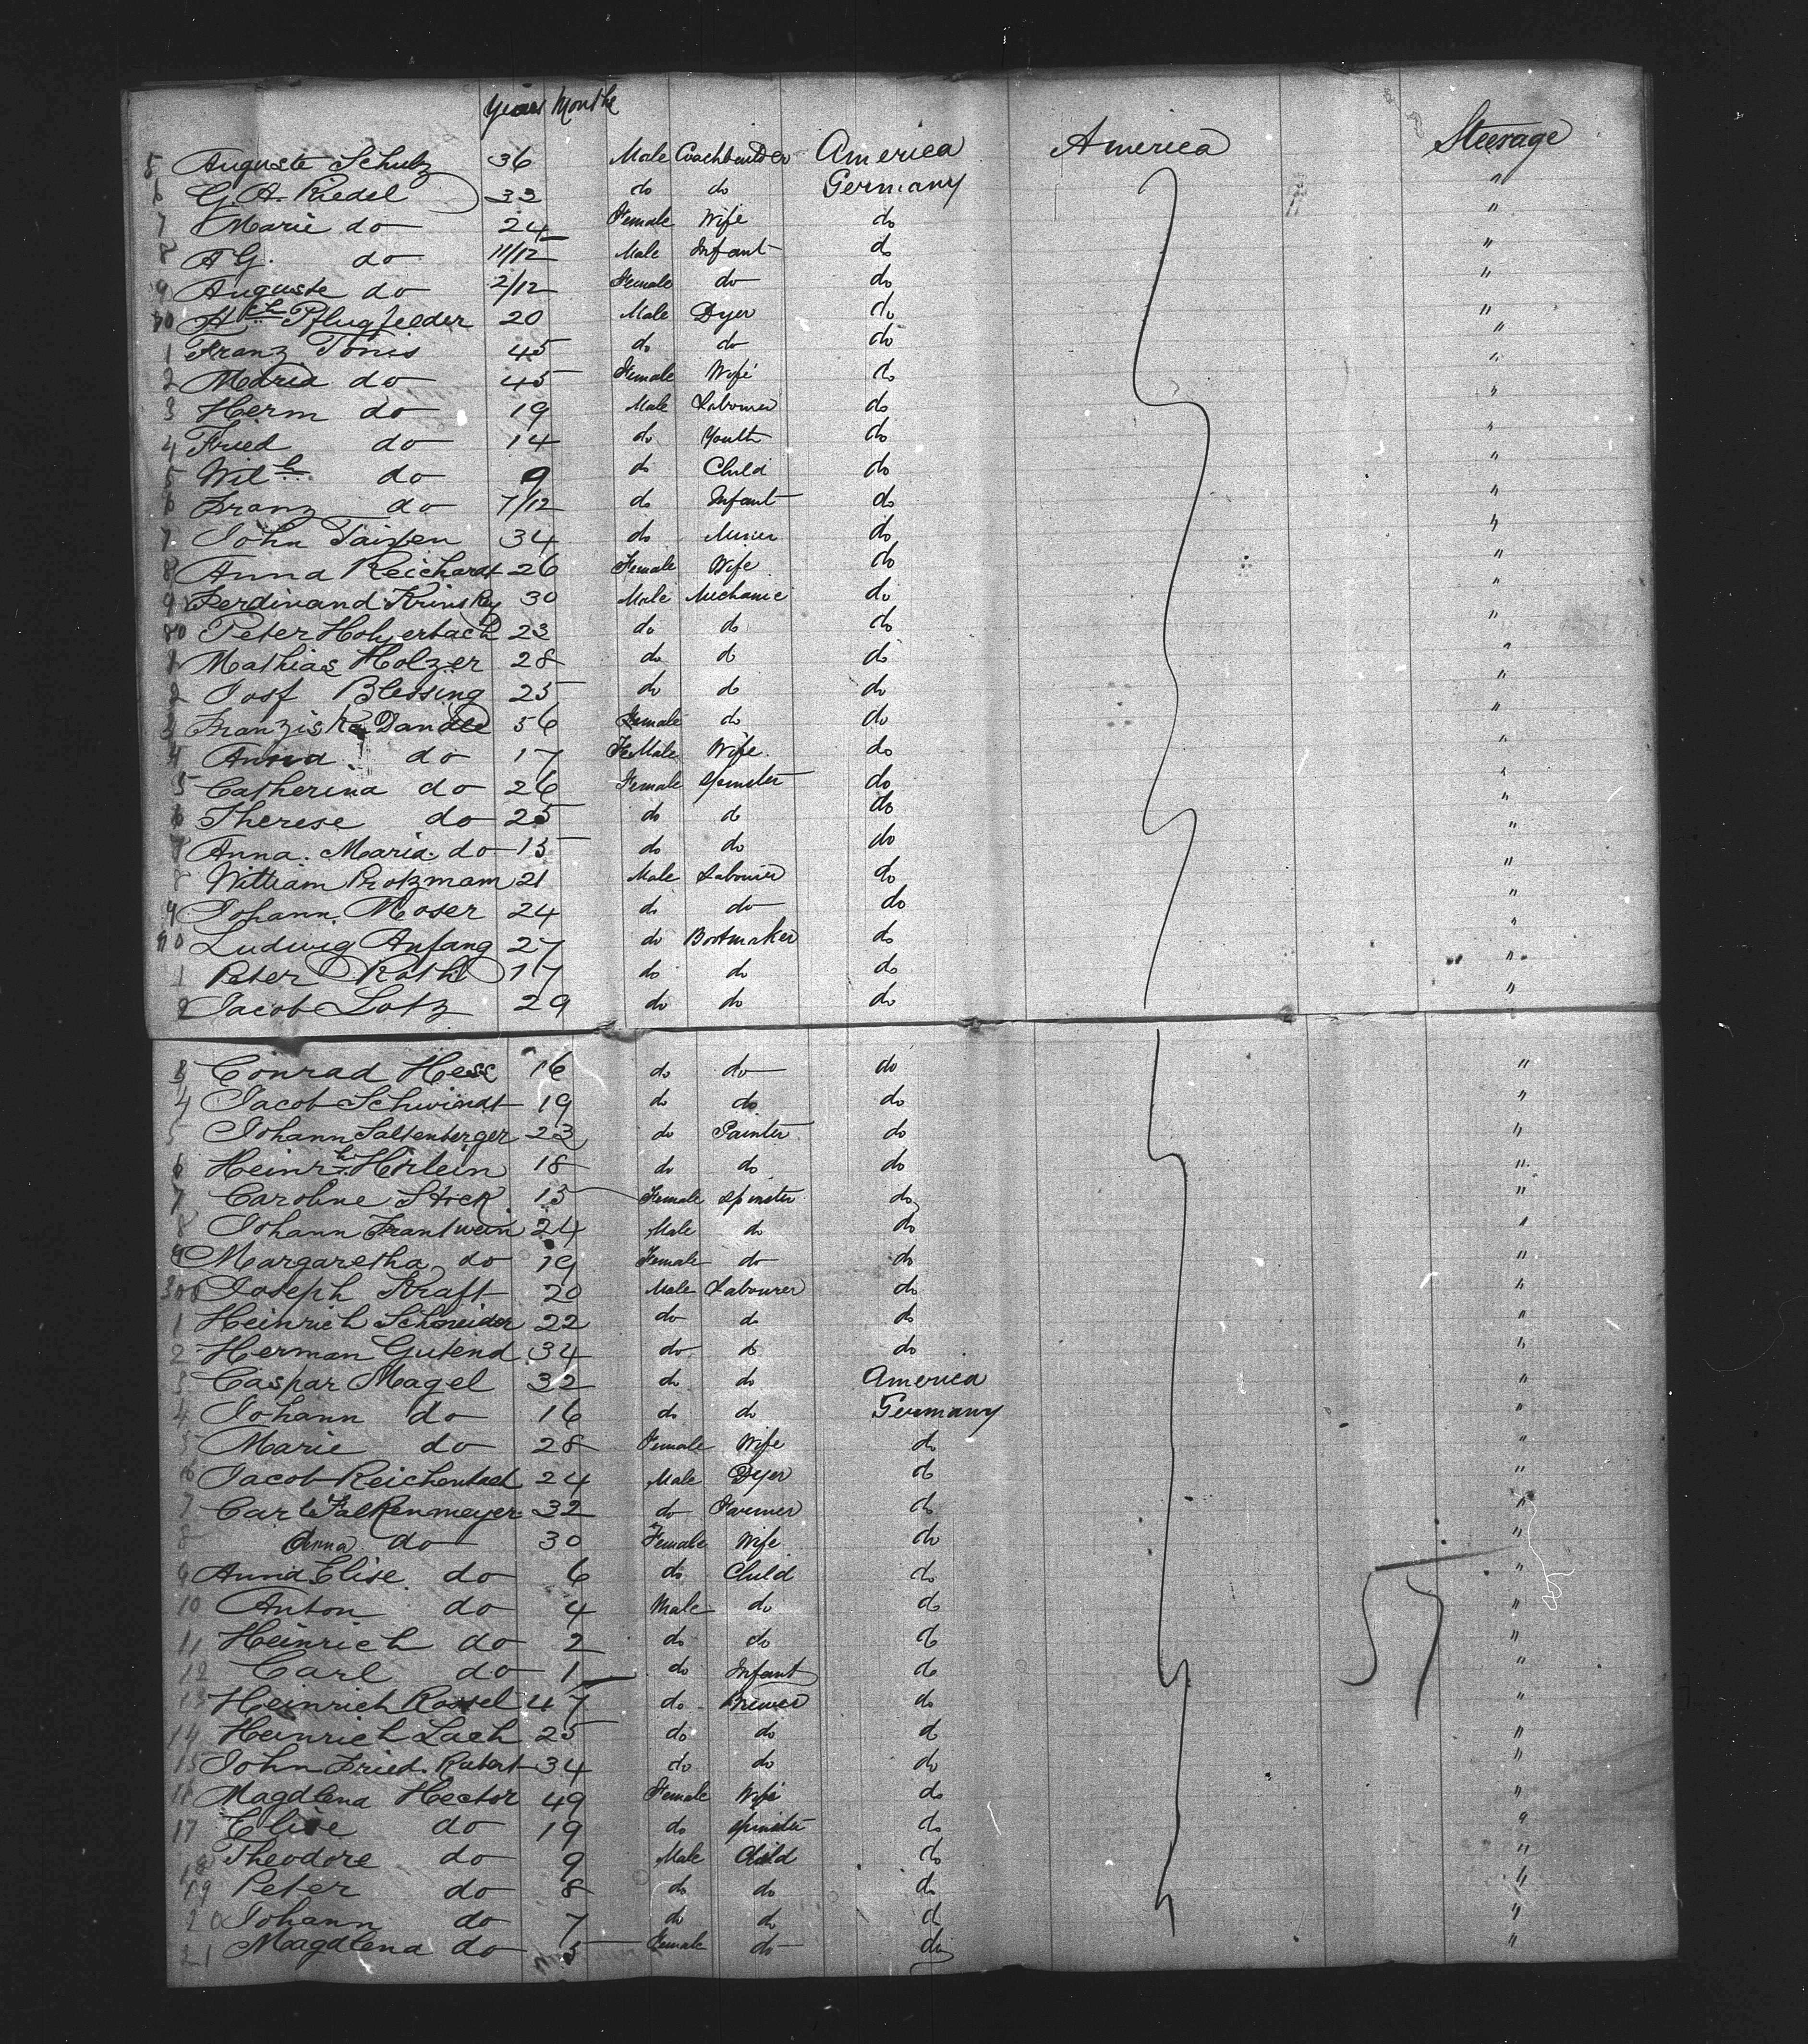 Years Months
5 Auguste Schulz 36 Male Coachbuilder America America Steerage
6 G. A. Riedel 32 do do Germany "
7 Marie do 24 Female Wife do "
8 A G. do 11/12 Male Infant do "
9 Auguste do 2/12 Female do do "
70 Hch Pflugfelder 20 Male Dyer do "
1 Franz Tonis 45 do do do "
2 Maria do 45 Female Wife do "
3 Herm do 19 Male Labourer do "
4 Fried do 14 do Youth do "
5 Wilh do 9 do Child do "
6 Franz do 7/12 do Infant do "
7 John 34 do Miner do "
8 Anna Reichardt 26 Female Wife do "
9 Ferdinand Krinsky 30 Male Mechanic do "
80 Peter Holzerbach 23 do do do "
1 Mathias Holzer 28 do do do "
2 Josf Blessing 25 do do do "
3 Franziska Dandle 56 Female do do "
4 Anna do 17 FeMale Wife do "
5 Catherina do 26 Female Spinster do "
6 Therese do 25 do do do "
7 Anna. Maria. do 15 do do do "
8 William Protzmam 21 Male Labourer do "
9 Johann Moser 24 do do do "
90 Ludwig Anfang 27 do Bootmaker do "
1 Peter Roth 17 do do do "
2 Jacob Lotz 29 do do do "
3 Conrad Hess 16 do do do "
4 Jacob Schwindt 19 do do do "
5 Johann Saltenberger 23 do Painter do "
6 Heinrh Hirlein 18 do do do "
7 Caroline Stock 15 Female Spinster do "
8 Johann Frantwein 24 Male do do "
9 Margaretha do 19 Female do do "
300 Joseph Kraft 20 Male Labourer do "
1 Heinrich Schneider 22 do do do "
2 Herman Gutend 34 do do do "
3 Caspar Magel 32 do do America "
4 Johann do 16 do do Germany "
5 Marie do 28 Female Wife do "
6 Jacob Reichenbach 24 Male Dyer do "
7 Carl Falkenmeyer 32 do Farmer do "
8 Anna do 30 Female Wife do "
9 Anna Elise do 6 do Child do "
10 Anton do 4 Male do do "
11 Heinrich do 2 do do do "
12 Carl do 1 do Infant do "
13 Heinrich Rossel 47 do Brewer do "
14 Heinrich Lach 25 do do do "
15 John Fried. Robert 34 do do do "
16 Magdlena Hector 49 Female Wife do "
17 Elise do 19 do Spinster do "
18 Theodore do 9 Male Child do "
19 Peter do 8 do do do "
20 Johann do 7 do do do "
21 Magdlena do 5 Female do do "
57